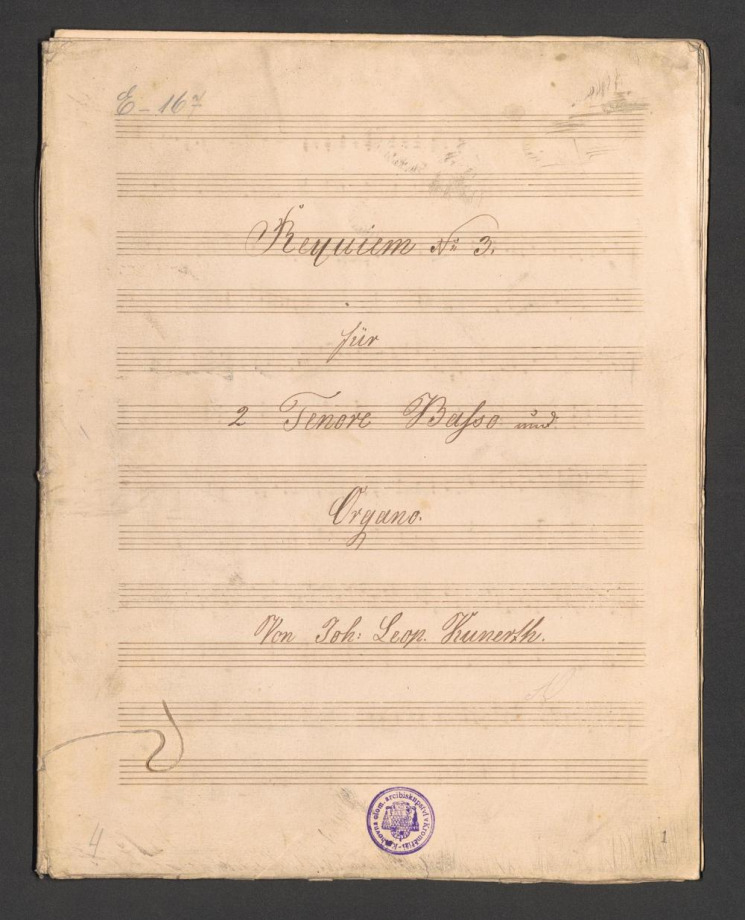 E - 167
Requiem No 3.
für
2 Tenore Basso und
Organo.
Von Joh: Leop. Kunerth.
Knihovna olom. arcibiskupství v Kroměříži
4
1